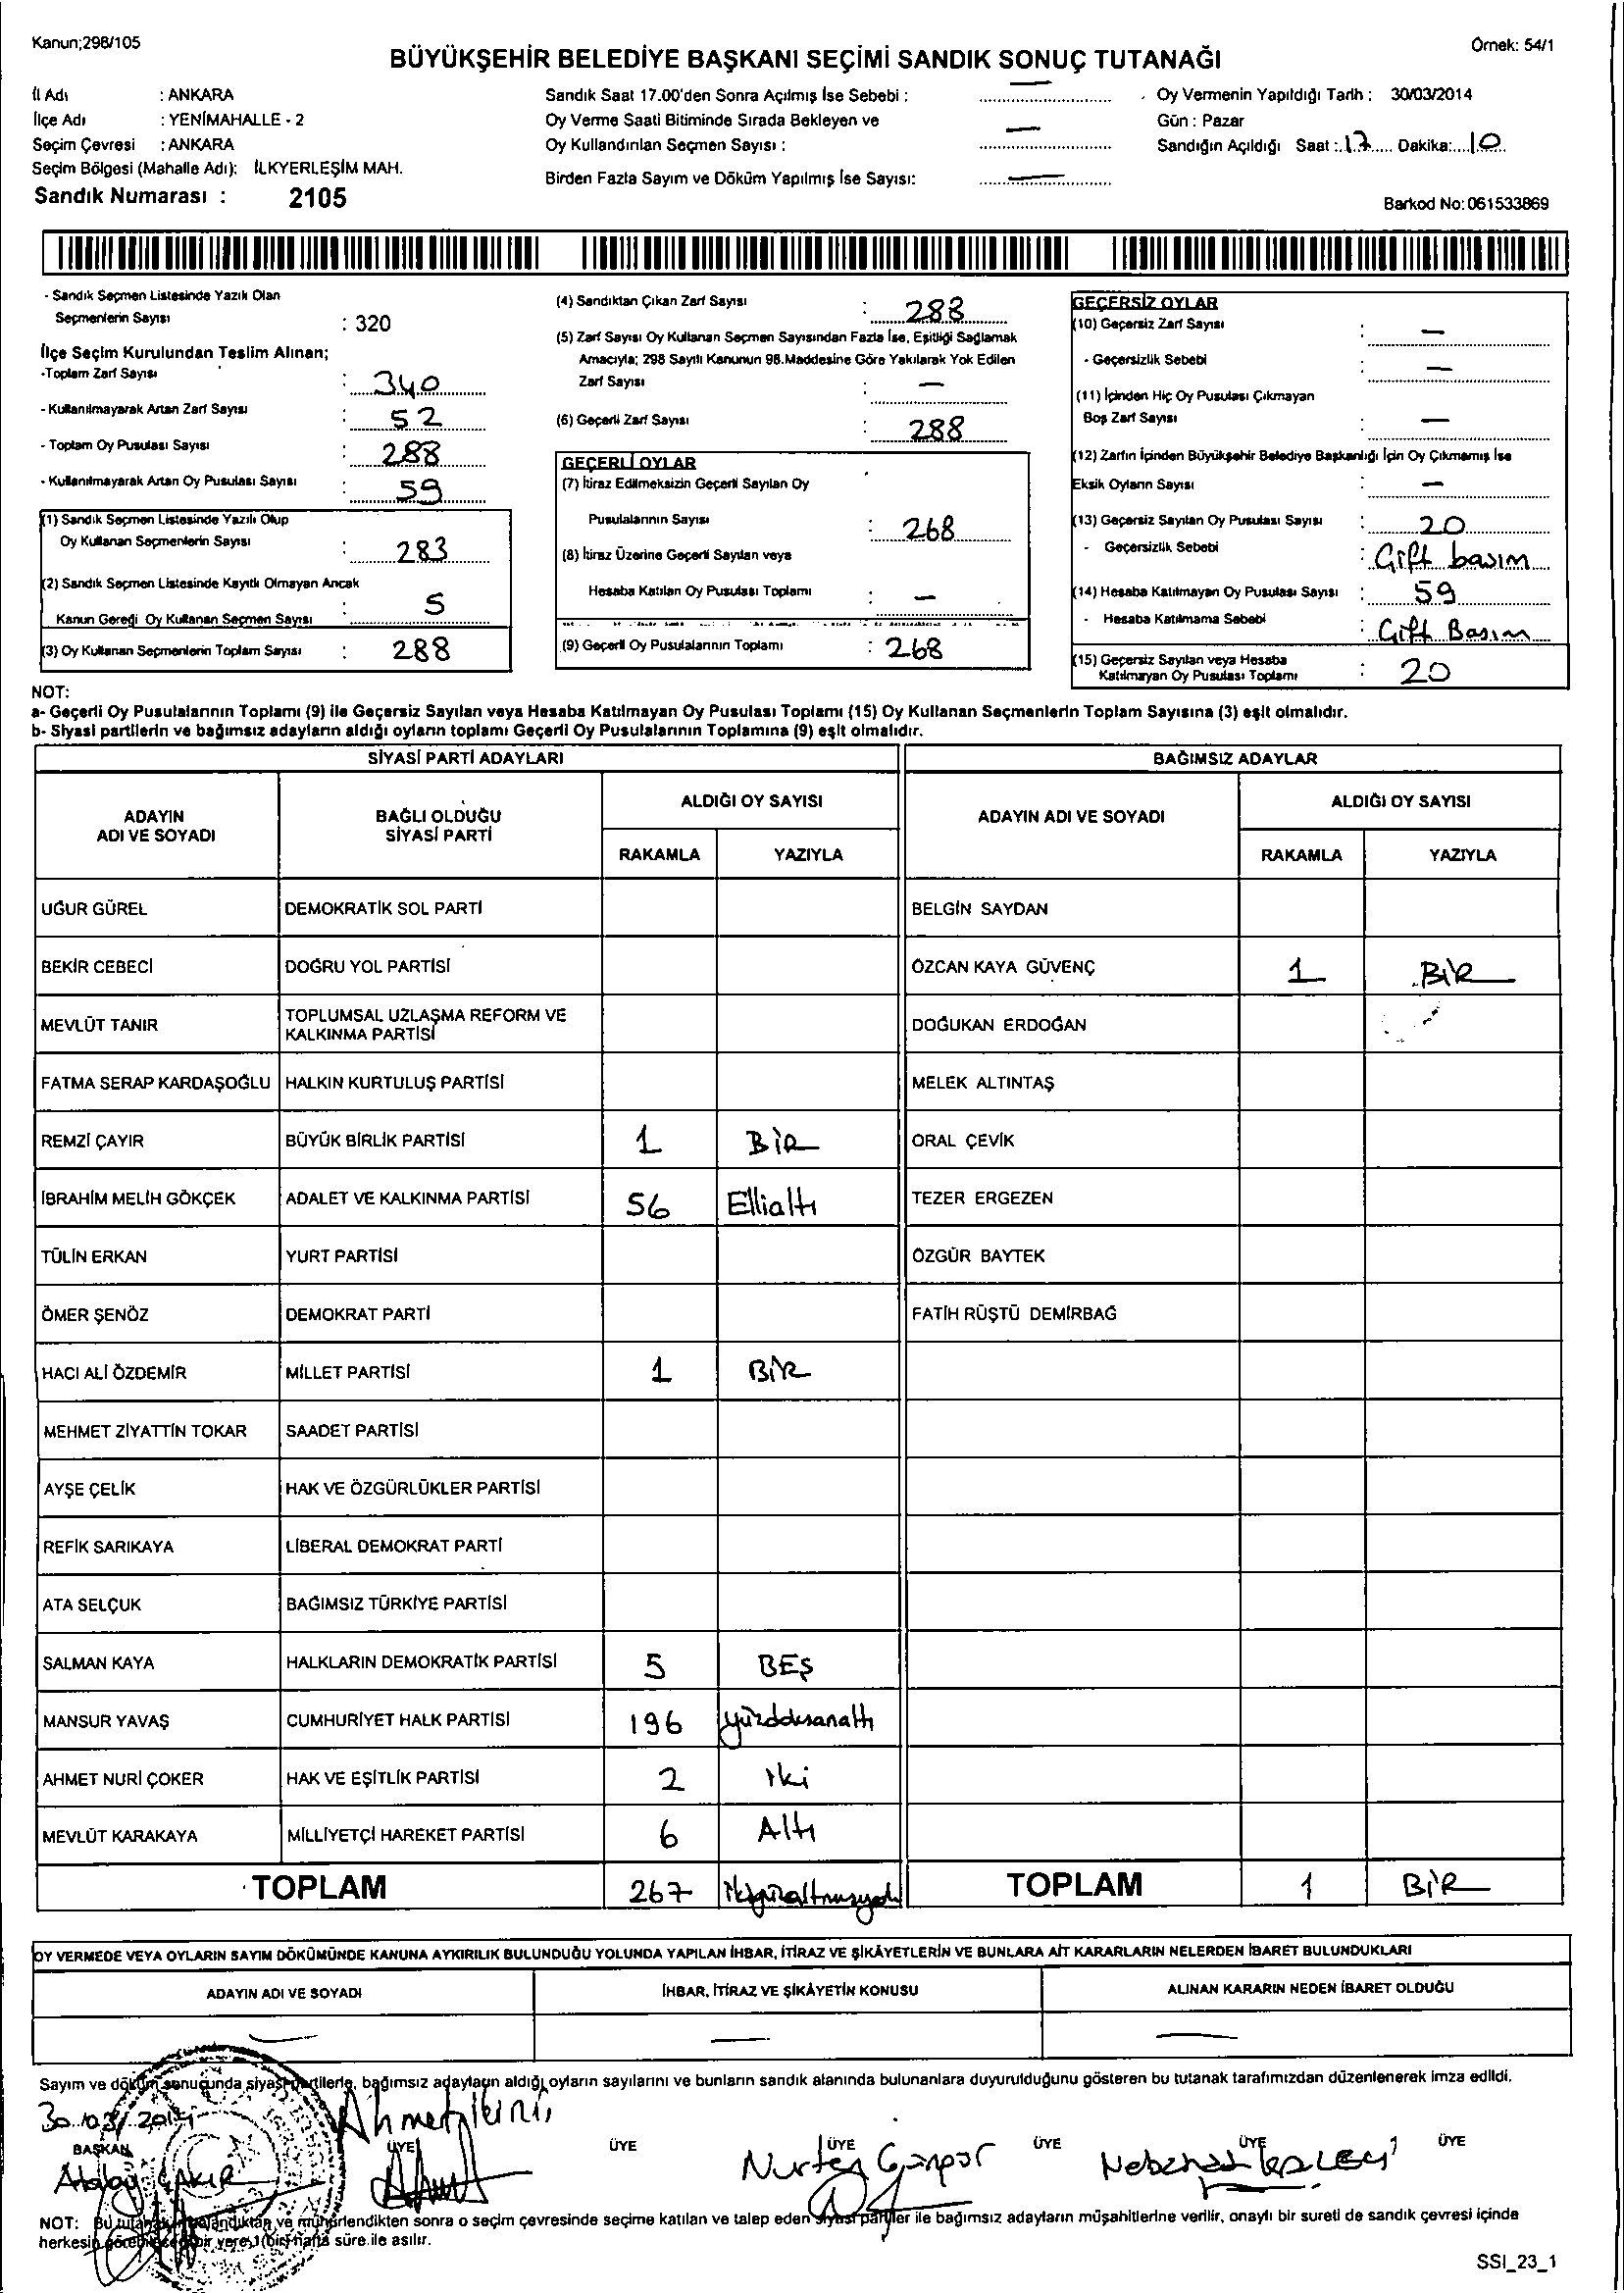 Kanun;298/105
Örnek: 54/1
BÜYÜKŞEHİR BELEDİYE BAŞKANI SEÇİMİ SANDIK SONUÇ TUTANAĞI
İl Adı : ANKARA
İlçe Adı : YENİMAHALLE - 2
Seçim Çevresi : ANKARA
Seçim Bölgesi (Mahalle Adı): İLKYERLEŞİM MAH.
Sandık Numarası : 2105
Sandık Saat 17.00'den Sonra Açılmış İse Sebebi : —
Oy Verme Saati Bitiminde Sırada Bekleyen ve
Oy Kullandırılan Seçmen Sayısı : —
Birden Fazla Sayım ve Döküm Yapılmış İse Sayısı: —
Oy Vermenin Yapıldığı Tarih : 30/03/2014
Gün : Pazar
Sandığın Açıldığı Saat : 17 Dakika: 10
Barkod No: 061533869
- Sandık Seçmen Listesinde Yazılı Olan
Seçmenlerin Sayısı : 320
İlçe Seçim Kurulundan Teslim Alınan;
-Toplam Zarf Sayısı : 340
- Kullanılmayarak Artan Zarf Sayısı : 52
- Toplam Oy Pusulası Sayısı : 288
- Kullanılmayarak Artan Oy Pusulası Sayısı : 59
(1) Sandık Seçmen Listesinde Yazılı Olup
Oy Kullanan Seçmenlerin Sayısı : 283
(2) Sandık Seçmen Listesinde Kayıtlı Olmayan Ancak
Kanun Gereği Oy Kullanan Seçmen Sayısı : 5
(3) Oy Kullanan Seçmenlerin Toplam Sayısı : 288
(4) Sandıktan Çıkan Zarf Sayısı : 288
(5) Zarf Sayısı Oy Kullanan Seçmen Sayısından Fazla İse, Eşitliği Sağlamak
Amacıyla; 298 Sayılı Kanunun 98.Maddesine Göre Yakılarak Yok Edilen
Zarf Sayısı : —
(6) Geçerli Zarf Sayısı : 288
GEÇERLİ OYLAR
(7) İtiraz Edilmeksizin Geçerli Sayılan Oy
Pusulalarının Sayısı : 268
(8) İtiraz Üzerine Geçerli Sayılan veya
Hesaba Katılan Oy Pusulası Toplamı : —
(9) Geçerli Oy Pusulalarının Toplamı : 268
GEÇERSİZ OYLAR
(10) Geçersiz Zarf Sayısı : —
- Geçersizlik Sebebi : —
(11) İçinden Hiç Oy Pusulası Çıkmayan
Boş Zarf Sayısı : —
(12) Zarfın İçinden Büyükşehir Belediye Başkanlığı İçin Oy Çıkmamış İse
Eksik Oyların Sayısı : —
(13) Geçersiz Sayılan Oy Pusulası Sayısı : 20
- Geçersizlik Sebebi : Çift basım
(14) Hesaba Katılmayan Oy Pusulası Sayısı : 59
- Hesaba Katılmama Sebebi : Çift Basım
(15) Geçersiz Sayılan veya Hesaba
Katılmayan Oy Pusulası Toplamı : 20
NOT:
a- Geçerli Oy Pusulalarının Toplamı (9) ile Geçersiz Sayılan veya Hesaba Katılmayan Oy Pusulası Toplamı (15) Oy Kullanan Seçmenlerin Toplam Sayısına (3) eşit olmalıdır.
b- Siyasi partilerin ve bağımsız adayların aldığı oyların toplamı Geçerli Oy Pusulalarının Toplamına (9) eşit olmalıdır.
SİYASİ PARTİ ADAYLARI BAĞIMSIZ ADAYLAR
ADAYIN ADI VE SOYADI BAĞLI OLDUĞU SİYASİ PARTİ ALDIĞI OY SAYISI ADAYIN ADI VE SOYADI ALDIĞI OY SAYISI
RAKAMLA YAZIYLA RAKAMLA YAZIYLA
UĞUR GÜREL DEMOKRATİK SOL PARTİ BELGİN SAYDAN
BEKİR CEBECİ DOĞRU YOL PARTİSİ ÖZCAN KAYA GÜVENÇ 1 BİR
MEVLÜT TANIR TOPLUMSAL UZLAŞMA REFORM VE KALKINMA PARTİSİ DOĞUKAN ERDOĞAN
FATMA SERAP KARDAŞOĞLU HALKIN KURTULUŞ PARTİSİ MELEK ALTINTAŞ
REMZİ ÇAYIR BÜYÜK BİRLİK PARTİSİ 1 BİR ORAL ÇEVİK
İBRAHİM MELİH GÖKÇEK ADALET VE KALKINMA PARTİSİ 56 Ellialtı TEZER ERGEZEN
TÜLİN ERKAN YURT PARTİSİ ÖZGÜR BAYTEK
ÖMER ŞENÖZ DEMOKRAT PARTİ FATİH RÜŞTÜ DEMİRBAĞ
HACI ALİ ÖZDEMİR MİLLET PARTİSİ 1 BİR
MEHMET ZİYATTİN TOKAR SAADET PARTİSİ
AYŞE ÇELİK HAK VE ÖZGÜRLÜKLER PARTİSİ
REFİK SARIKAYA LİBERAL DEMOKRAT PARTİ
ATA SELÇUK BAĞIMSIZ TÜRKİYE PARTİSİ
SALMAN KAYA HALKLARIN DEMOKRATİK PARTİSİ 5 BEŞ
MANSUR YAVAŞ CUMHURİYET HALK PARTİSİ 196
AHMET NURİ ÇOKER HAK VE EŞİTLİK PARTİSİ 2 iki
MEVLÜT KARAKAYA MİLLİYETÇİ HAREKET PARTİSİ 6 Altı
TOPLAM 267 TOPLAM 1 BİR
OY VERMEDE VEYA OYLARIN SAYIM DÖKÜMÜNDE KANUNA AYKIRILIK BULUNDUĞU YOLUNDA YAPILAN İHBAR, İTİRAZ VE ŞİKÂYETLERİN VE BUNLARA AİT KARARLARIN NELERDEN İBARET BULUNDUKLARI
ADAYIN ADI VE SOYADI İHBAR, İTİRAZ VE ŞİKÂYETİN KONUSU ALINAN KARARIN NEDEN İBARET OLDUĞU
— — —
Sayım ve döküm sonucunda siyasi partilerle, bağımsız adayların aldığı oyların sayılarını ve bunların sandık alanında bulunanlara duyurulduğunu gösteren bu tutanak tarafımızdan düzenlenerek imza edildi.
30/03/2014
BAŞKAN ÜYE ÜYE ÜYE ÜYE ÜYE ÜYE
Atabay ÇAKIR Ahmet Nurten
NOT: Bu tutanak imzalandıktan ve mühürlendikten sonra o seçim çevresinde seçime katılan ve talep eden siyasi partiler ile bağımsız adayların müşahitlerine verilir, onaylı bir sureti de sandık çevresi içinde
herkesin görebileceği bir yere 1(bir) hafta süre ile asılır.
SSI_23_1